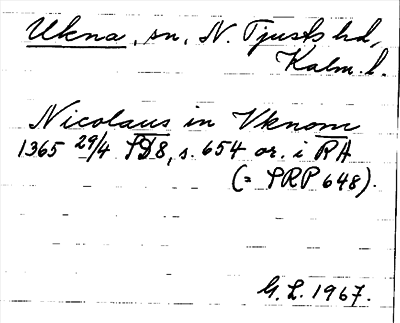 Ukna, sn, N. Tjusts hd,
Kalm. l.
Nicolaus in Vknom
1365 29/4 SD8, s. 654 or. i RA
(= SRP 648).
G. L. 1967.